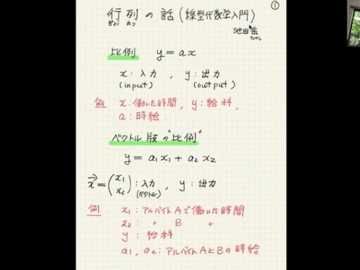 行列の話(線型代数学入門)
ぎょう れつ
①
池田岳
たけし
比例 y=ax
x:入力, y:出力
(input) (output)
例 x:働いた時間, y:給料,
a:時給.
ベクトル版の"比例"
y = a₁x₁ + a₂x₂
x⃗ = (x₁ x₂):入力(ベクトル), y:出力
例 x₁:アルバイトAで働いた時間
x₂: 〃 B 〃
y:給料
a₁, a₂:アルバイトAとBの時給